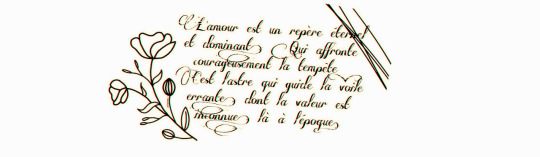 L'amour est un repère éternel
et dominant Qui affronte
courageusement la tempête
C'est l'astre qui guide la voile
errante dont la valeur est
inconnue là à l'époque